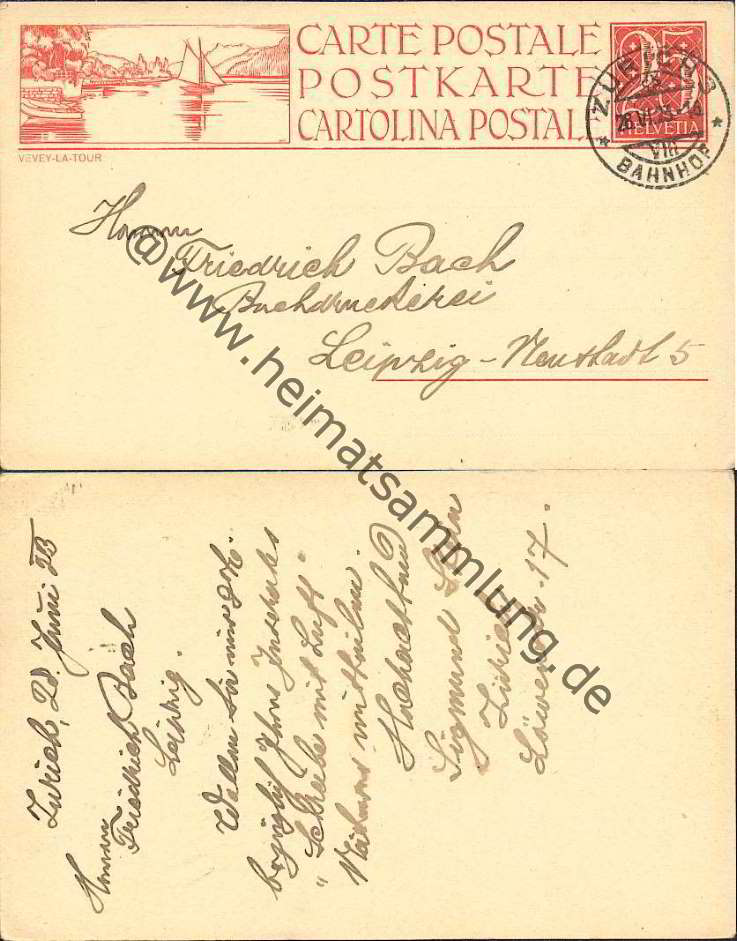 CARTE POSTALE
POSTKARTE
CARTOLINA POSTALE
25
HELVETIA
ZÜRICH
26.VI.25
VIII
BAHNHOF
VEVEY-LA-TOUR
Herrn
Friedrich Bach
Buchdruckerei
Leipzig-Neustadt 5
@www.heimatsammlung.de
Zürich, Juni 25
Herrn
Friedrich Bach
Leipzig.
Wollen Sie mir
bezüglich Ihres Inserates
"Schreibe mit Luft"
Näheres mitteilen.
Hochachtend
Sigmund
Zürich
Löwenstr. 17.